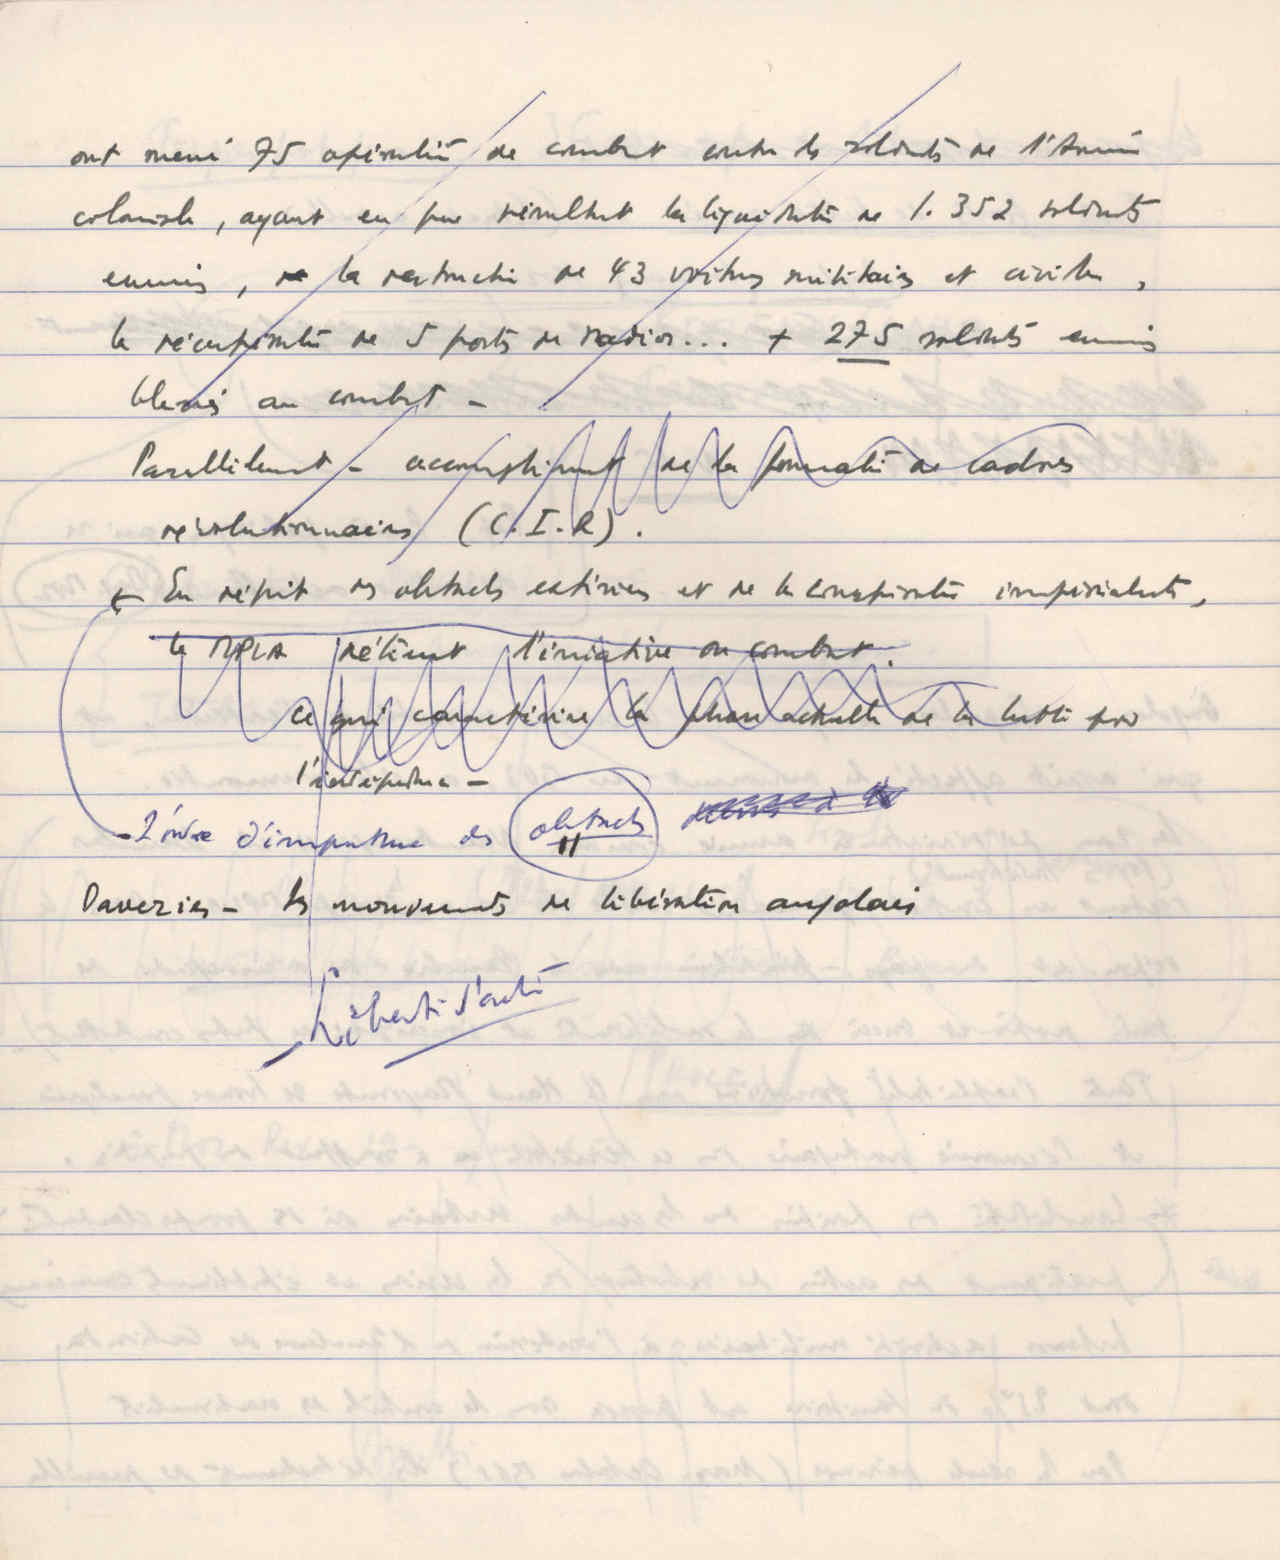 ont mené 75 opérations de combat contre les soldats de l'Armée
coloniale, ayant eu pour résultat la liquidation de 1.352 soldats
ennemis, de la destruction de 43 voitures militaires et civiles,
la récupération de 5 postes de radios... + 275 soldats ennemis
blessés au combat -
Parallèlement - accomplissement de la formation de cadres
révolutionnaires (C.I.R).
En dépit des obstacles extérieurs et de la conspiration impérialiste,
le MPLA détient l'iniative du combat.
ce qui caractérise la phase actuelle de la lutte pour
l'indépendance -
- L'ordre d'importance des obstacles
Davezies - les mouvements de libération angolais
Liberté